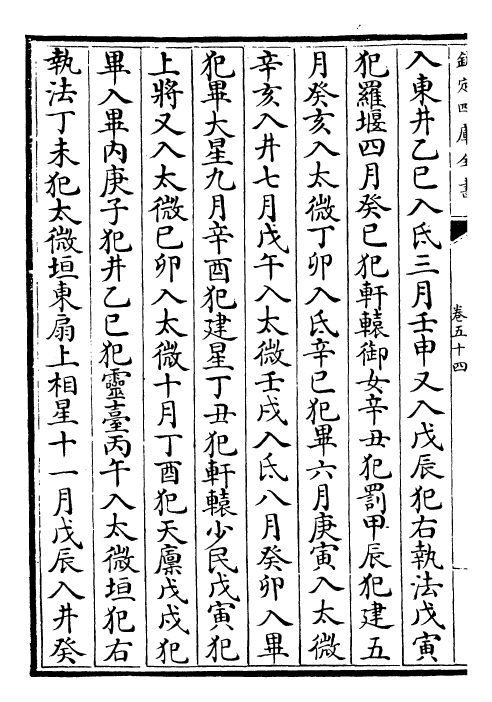 欽定四庫全書
卷五十四
入東井乙巳入氐三月壬申又入戊辰犯右執法戊寅
犯羅堰四月癸巳犯軒轅御女辛丑犯罰甲辰犯建五
月癸亥入太微丁卯入氐辛巳犯畢六月庚寅入太微
辛亥入井七月戊午入太微壬戌入氐八月癸卯入畢
犯畢大星九月辛酉犯建星丁丑犯軒轅少民戊寅犯
上將又入太微巳卯入太微十月丁酉犯天廩戊戍犯
畢入畢内庚子犯井乙巳犯靈臺丙午入太微垣犯右
執法丁未犯太微垣東扇上相星十一月戊辰入井癸